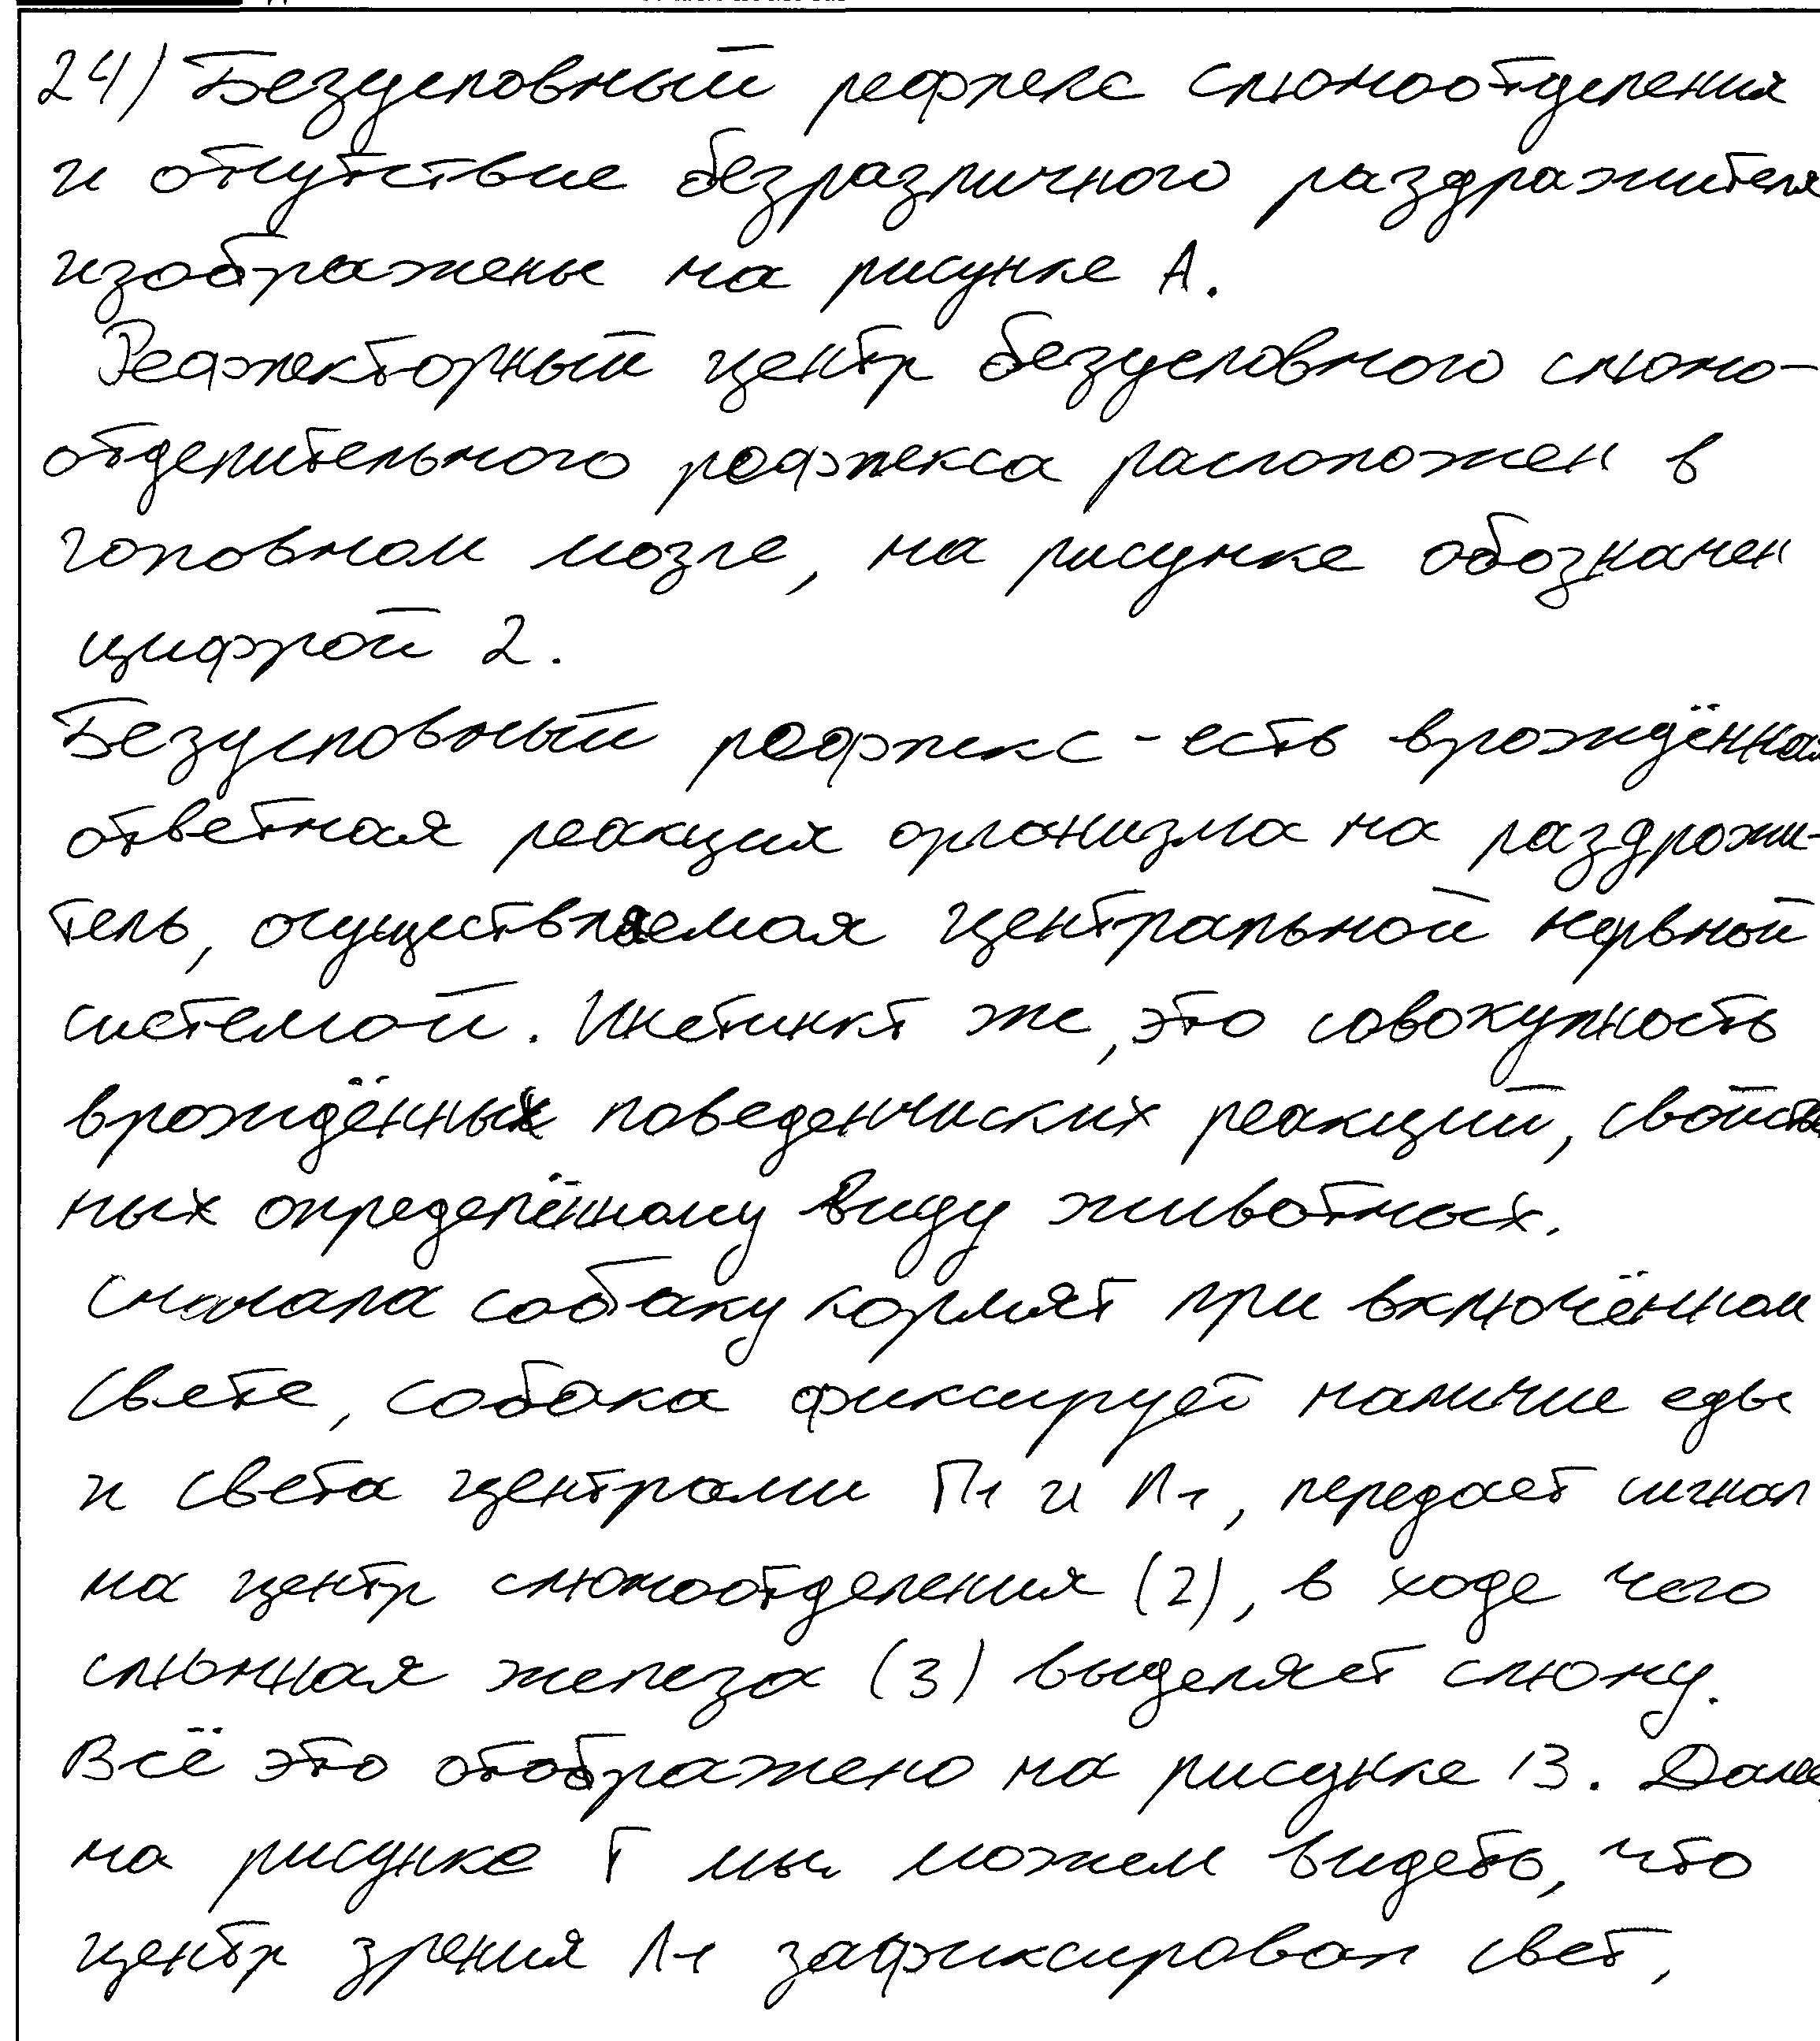 24) Безусловный рефлекс слюноотделения
и отсутствие безразличного раздражителя
изображены на рисунке А.
Рефлекторный центр безусловного слюно-
отделительного рефлекса расположен в
головном мозге, на рисунке обозначен
цифрой 2.
Безусловный рефлекс - есть врождённая
ответная реакция организма на раздрожи-
тель, осуществляемая центральной нервной
системой. Инстинкт же, это совокупность
врождённых поведенческих реакций, свойствен
ных определённому виду животных.
Сначала собаку кормят при включённом
свете, собака фиксирует наличие еды
и света центрами П1 и Л1, передает сигнал
на центр слюноотделения (2), в ходе чего
слюнная железа (3) выделяет слюну.
Всё это отображено на рисунке В. Далее,
на рисунке Г мы можем видеть, что
центр зрения Л1 зафиксировал свет,